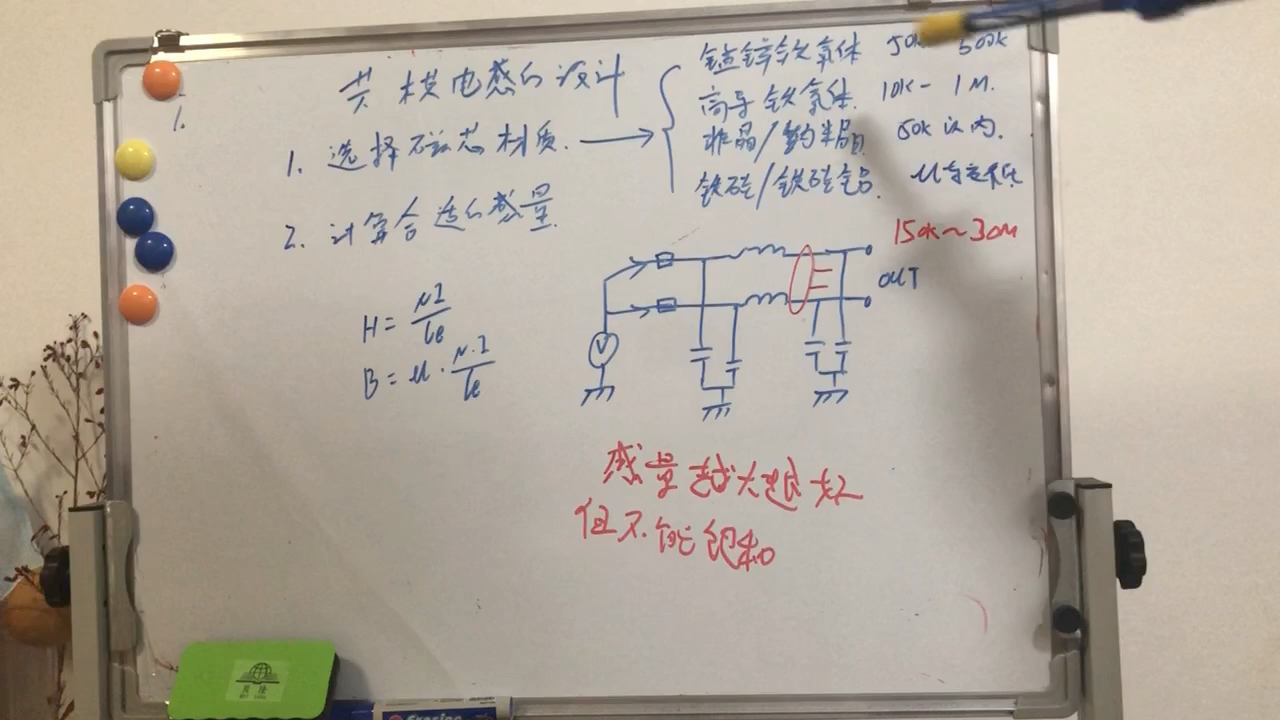 共模电感的设计
1.
1. 选择磁芯材质. → { 锰锌铁氧体 50K 500K
高导铁氧体. 10K - 1M.
非晶/纳米晶. 50K以内.
铁硅/铁硅 μ
2. 计算合适的感量.
150K~30M
OUT
V
H = NI/le
B = μ · N.I/le
感量越大越好
但不能饱和